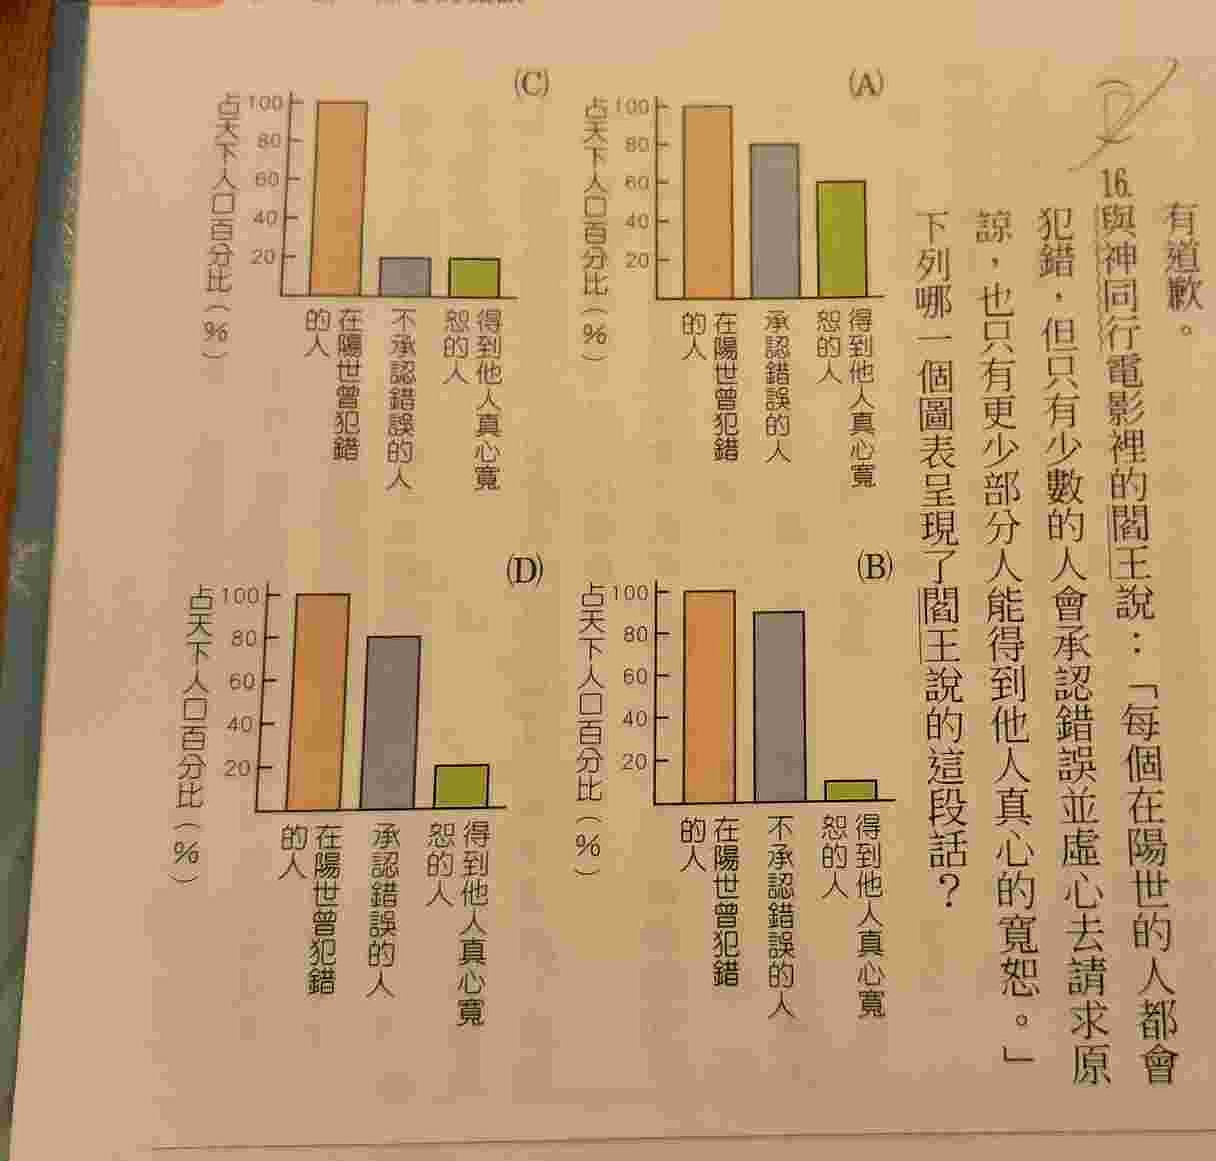 有道歉。
16.與神同行電影裡的閻王說：「每個在陽世的人都會
犯錯，但只有少數的人會承認錯誤並虛心去請求原
諒，也只有更少部分人能得到他人真心的寬恕。」
下列哪一個圖表呈現了閻王說的這段話？
(A)
占天下人口百分比（%）
100
80
60
40
20
在陽世曾犯錯
的人
承認錯誤的人
得到他人真心寬
恕的人
(B)
占天下人口百分比（%）
100
80
60
40
20
在陽世曾犯錯
的人
不承認錯誤的人
得到他人真心寬
恕的人
(C)
占天下人口百分比（%）
100
80
60
40
20
在陽世曾犯錯
的人
不承認錯誤的人
得到他人真心寬
恕的人
(D)
占天下人口百分比（%）
100
80
60
40
20
在陽世曾犯錯
的人
承認錯誤的人
得到他人真心寬
恕的人